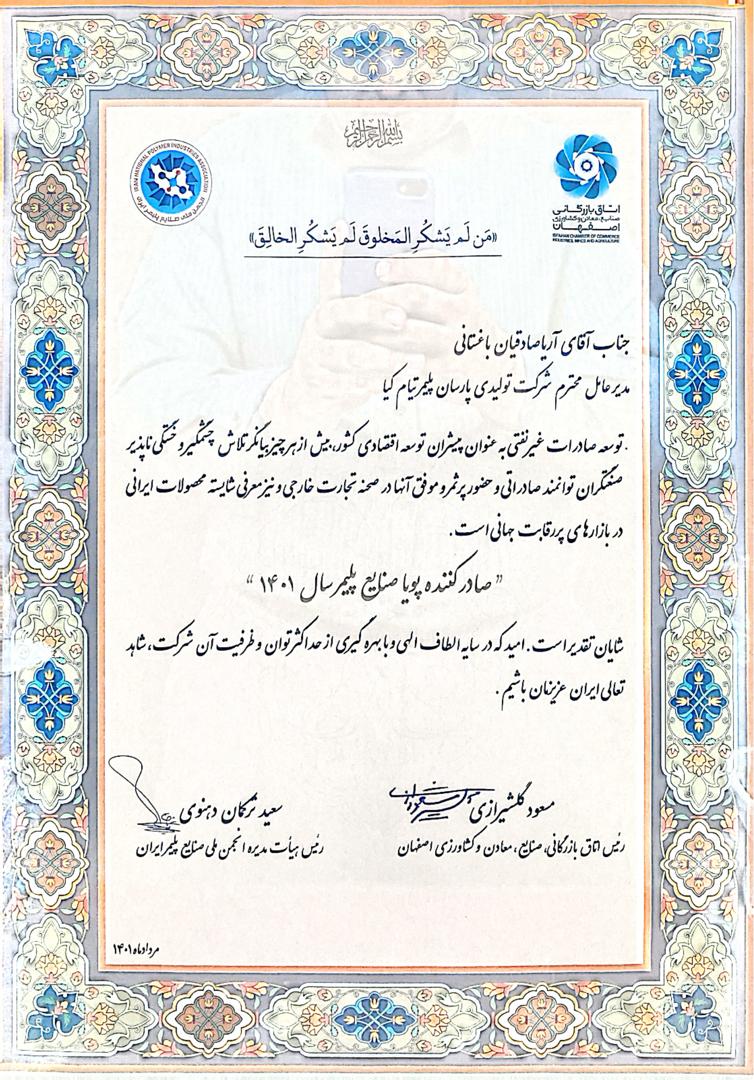 بسم الله الرحمن الرحیم
IRAN NATIONAL POLYMER INDUSTRIES ASSOCIATION
انجمن ملی صنایع پلیمر ایران
اتاق بازرگانی
صنایع، معادن و کشاورزی
اصفهان
ISFAHAN CHAMBER OF COMMERCE
INDUSTRIES, MINES AND AGRICULTURE
«مَن لَم یَشکُرِ المَخلوقَ لَم یَشکُرِ الخالِقَ»
جناب آقای آریا صادقیان باغستانی
مدیر عامل محترم شرکت تولیدی پارسان پلیمر تیام کیا
. توسعه صادرات غیر نفتی به عنوان پیشران توسعه اقتصادی کشور، بیش از هر چیز بیانگر تلاش چشمگیر و خستگی ناپذیر
صنعتگران توانمند صادراتی و حضور پرثمر و موفق آنها در صحنه تجارت خارجی و نیز معرفی شایسته محصولات ایرانی
در بازارهای پررقابت جهانی است.
"صادر کننده پویا صنایع پلیمر سال ۱۴۰۱"
شایان تقدیر است. امید که در سایه الطاف الهی و با بهره گیری از حداکثر توان و ظرفیت آن شرکت، شاهد
تعالی ایران عزیزمان باشیم.
مسعود گلشیرازی
رئیس اتاق بازرگانی، صنایع، معادن و کشاورزی اصفهان
سعید ترکمان دهنوی
رئیس هیأت مدیره انجمن ملی صنایع پلیمر ایران
مرداد ماه ۱۴۰۱